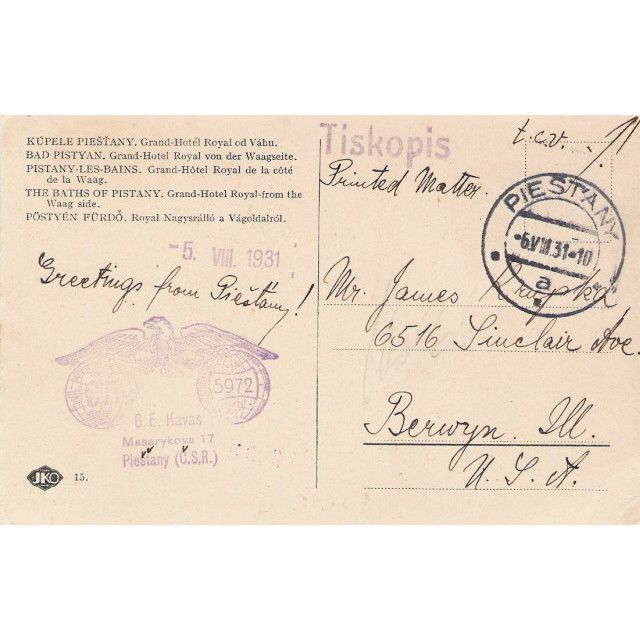 KÚPELE PIEŠŤANY. Grand-Hotél Royal od Váhu.
BAD PISTYAN. Grand-Hotel Royal von der Waagseite.
PISTANY-LES-BAINS. Grand-Hôtel Royal de la côté
de la Waag.
THE BATHS OF PISTANY. Grand-Hotel Royal-from the
Waag side.
PÖSTYÉN FÜRDŐ. Royal Nagyszálló a Vágoldalról.
-5. VIII. 1931
Greetings from Piešťany!
5972
G. E. Havas
Masarykova 17
Piešťany (Č.S.R.)
JKO 15.
Tiskopis
t.c.v.
Printed Matter.
PIEŠŤANY
-6.VIII.31-10
a
Mr. James Krupka,
6516 Sinclair Ave.
Berwyn. Ill.
U. S. A.